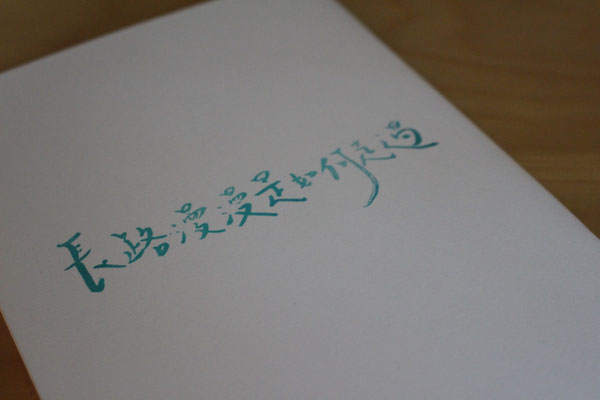 長路漫漫是如何走過